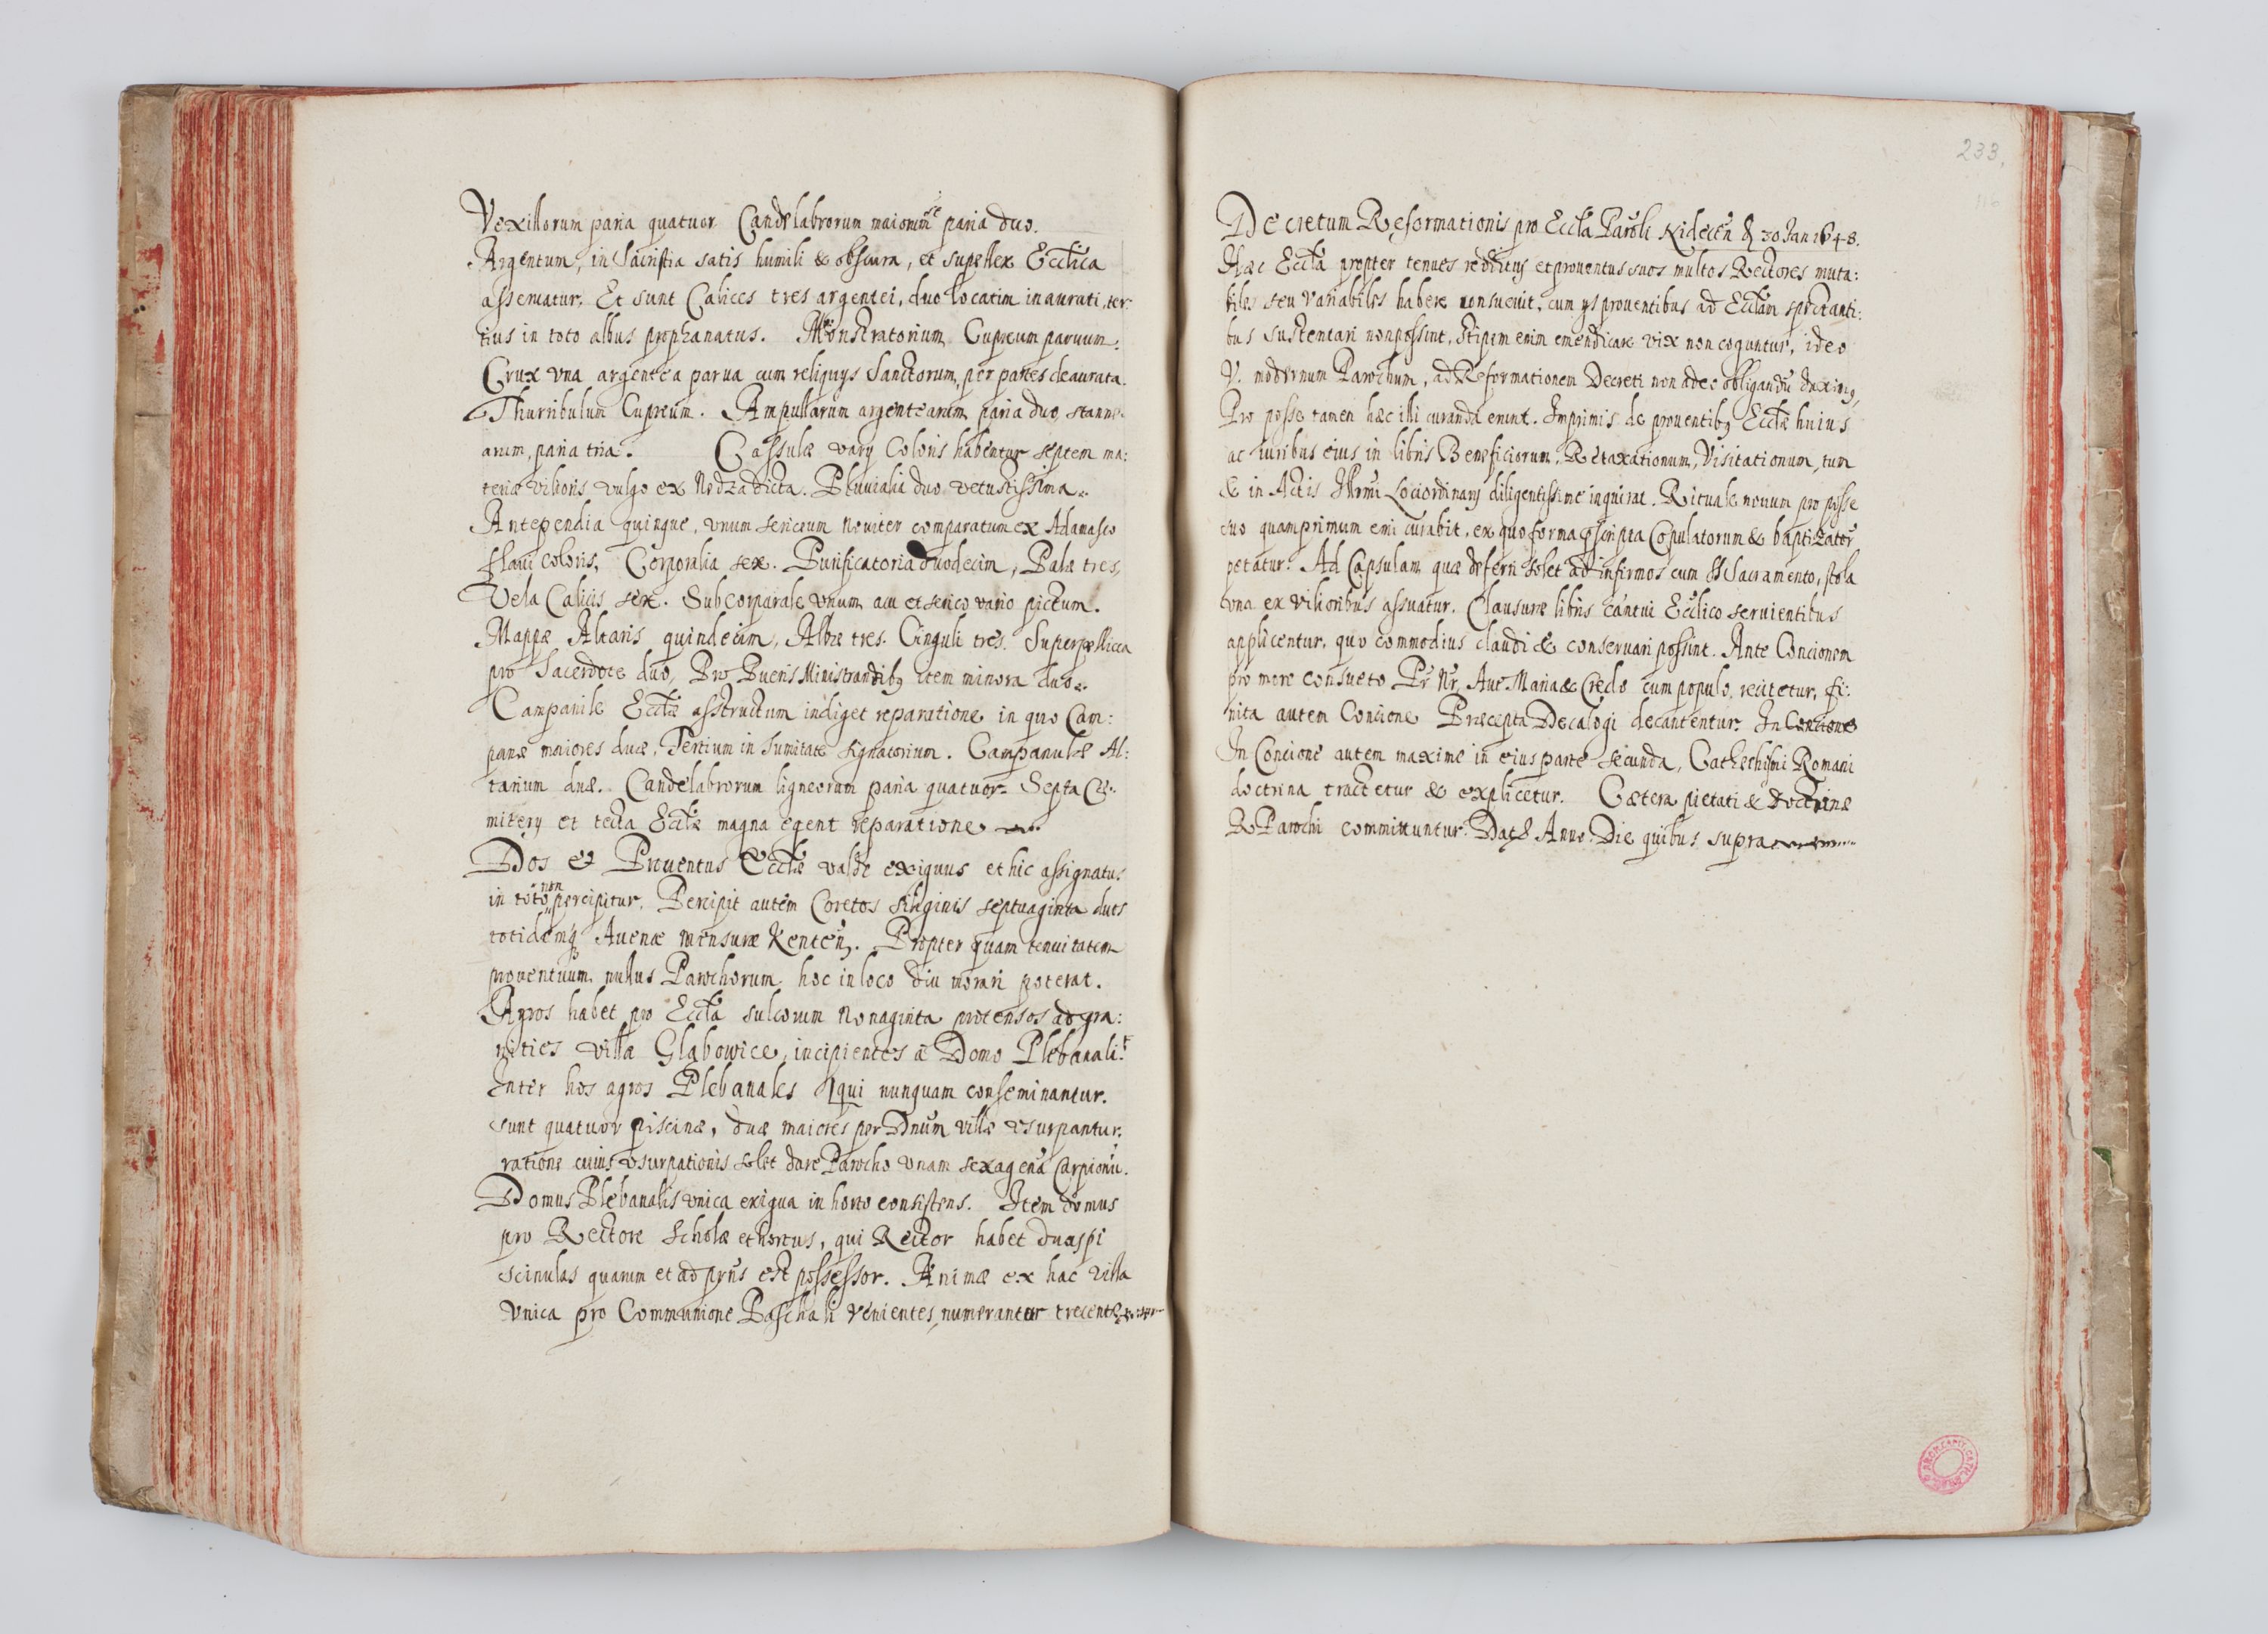 Vexillorum paria quatuor Candelabrorum maiorum paria duo.
Argentum, in Sacristia satis humili & obscura, et supellex Ecclica
asseruatur. Et sunt Calices tres argentei, duo locatim inaurati, ter:
tius in toto albus prophanatus. Monstratorium Cupreum paruum.
Crux vna argentea parua cum reliquys Sanctorum, per partes deaurata.
Thuribulum Cupreum. Ampullarum argentearum paria duo, stanne:
arum, paria tria. Cassulæ vary Coloris habentur septem ma:
teriæ vilioris vulgo ex Nedza dicta. Pluuialia duo vetustissima.
Antependia quinque, vnum sericeum nouiter comparatum ex Adamasco
flaui coloris, Corporalia sex. Purificatoria duodecim, Palæ tres,
Vela Calicis sex. Subcorparale vnum acu et serico vario pictum.
Mappæ Altaris quindecim, Albæ tres. Cinguli tres. Superpellicea
pro Sacerdote duo, Pro Pueris Ministrantibq item minora duo.
Campanile Ecclæ asstructum indiget reparatione in quo Cam:
panæ maiores duæ, Tertium in sumitate signatorium. Campanulæ Al:
tarium duæ. Candelabrorum ligneorum paria quatuor. Septa Cæ:
mitery et tecta Ecclæ magna egent reparatione
Dos et Prouentus Ecclæ valde exiguus et hic assignatus
in toto non percipitur. Percipit autem Coretos siliginis septuaginta duos
totidemq Auenæ mensuræ Kenten. Propter quam tenuitatem
prouentuum nullus Parochorum hoc in loco diu morari poterat.
Agros habet pro Eccla sulcorum Nonaginta protensos ad gra:
nities villæ Głąbowice, incipientes a Domo Plebanali.
Inter hos agros Plebanales qui nunquam conseminantur.
sunt quatuor piscinæ, duæ maiores per Dnum villæ vsurpantur.
ratione cuius vsurpationis solet dare Parocho vnam sexagenā Carpionū.
Domus Plebanalis vnica exigua in horto consistens. Item domus
pro Rectore Scholæ et hortus, qui Rector habet duas pi
scinulas quarum et ad pryns est possessor. Animæ ex hac villa
vnica pro Communione Paschali venientes, numerantur trecentæ
233.
116
Decretum Reformationis pro Eccla Paroli Nidecen 30 Jan 1648.
Hæc Eccla propter tenues redditus et prouentus suos multos Rectores muta:
biles seu variabiles habere consueuit, cum ys prouentibus ad Ecclam spectanti:
bus sustentari non possint, stipem enim emendicare vix non coguntur, ideo
V. modernum Parochum, ad Reformationem Decreti non adeo obligandū duximq,
Pro posse tamen hæc illi curanda erunt. Imprimis de prouentibq Ecclæ huius
ac iuribus eius in libris Beneficiorum, Retaxationum, Visitationum, tum
& in Actis Illrmi Lociordinary diligentissime inquirat. Rituale nouum pro posse
suo quamprimum emi curabit, ex quo forma pscripta Copulatorum & baptizator
petatur. Ad Capsulam quæ deferri solet ad infirmos cum SS Sacramento, stola
vna ex vilioribus assuatur. Clausuræ libris cantui Ecclico seruientibus
applicentur, quo commodius claudi & conseruari possint. Ante Concionem
pro more consueto Pr Nr, Aue Maria & Credo cum populo recitetur, fi:
nita autem Concione Præcepta Decalogi decantentur. In Concione
In Concione autem maxime in eius parte secunda, Cathechismi Romani
doctrina tractetur & explicetur. Cætera pietati & doctrinæ
R Parochi committuntur. Dat Anno Die quibus supra